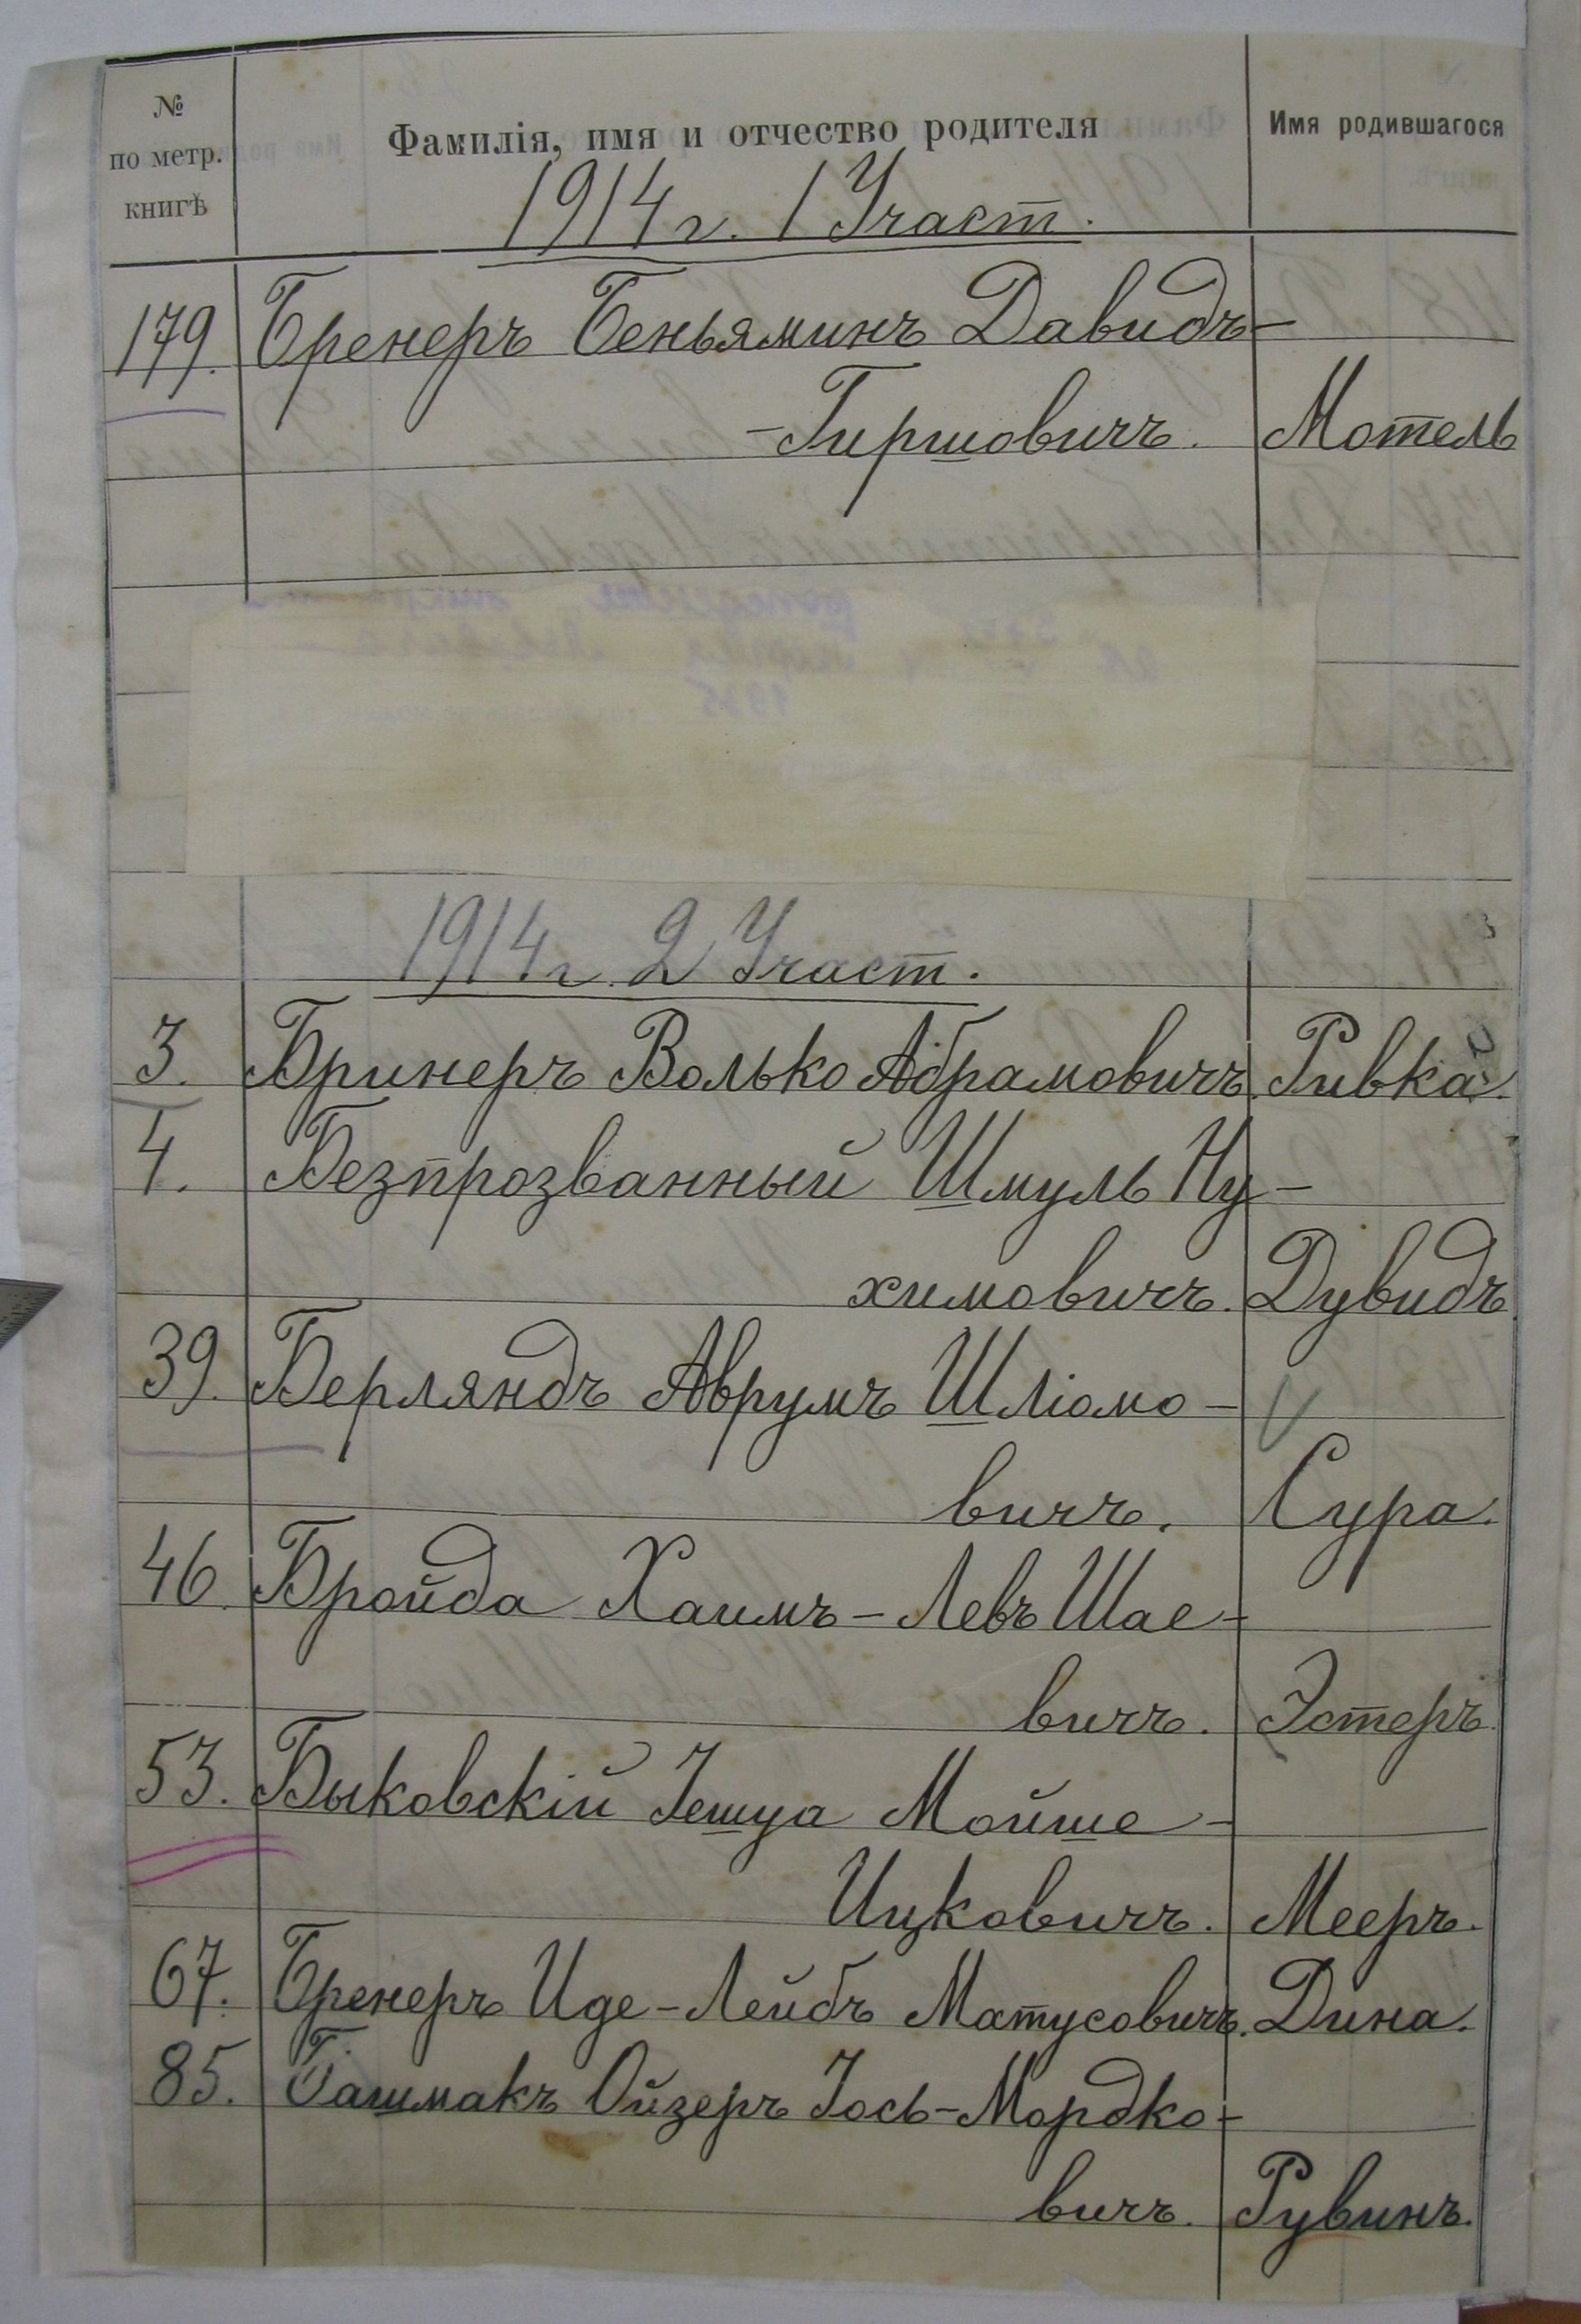 №
по метр.
книгѣ
Фамилія, имя и отчество родителя
Имя родившагося
1914 г. 1 Участ.
179. Бренеръ Беньяминъ Давидъ-
-Гиршовичъ. Мотель
1914 г. 2 Участ.
3. Бринеръ Волько Абрамовичъ. Ривка.
4. Безпрозванный Шмуль Ну-
химовичъ. Дувидъ.
39. Берляндъ Аврумъ Шліомо-
вичъ. Сура.
46. Бройда Хаимъ-Левъ Шае-
вичъ. Эстеръ.
53. Быковскій Іешуа Мойше-
Ицковичъ. Мееръ.
67. Бренеръ Иде-Лейбъ Матусовичъ. Дина.
85. Башмакъ Ойзеръ Іось-Мордко-
вичъ. Рувинъ.